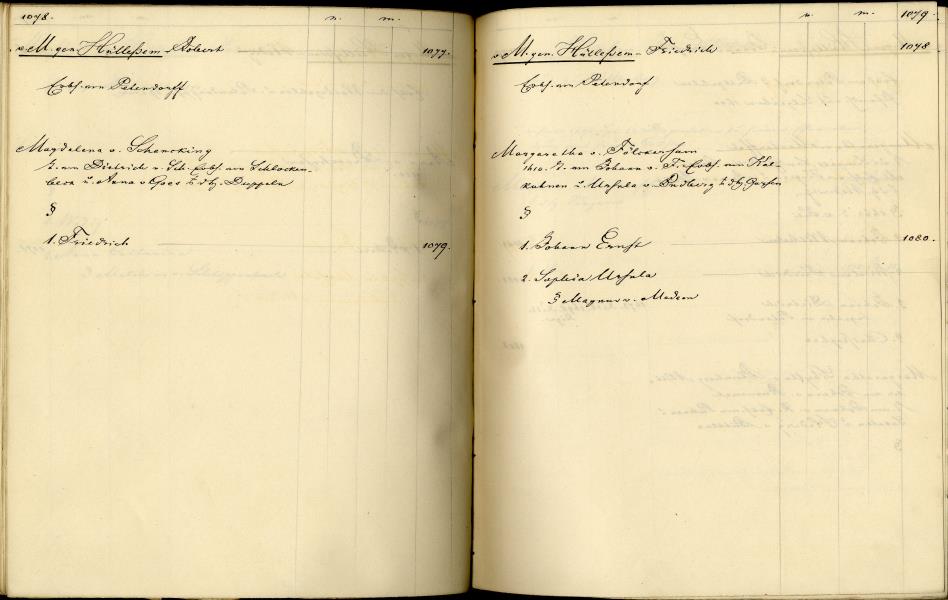 1078. n. m.
v. M. gen. Hülleßem - Robert 1077.
Erbh. von Petendorff
Magdalena v. Schencking
T. von Dietrich v. Sch. Erbh. von Schlocken-
beck u. Anna v. Goes a. d. H. Duppeln
§
1. Friedrich 1079.
n. m. 1079.
v. M. gen. Hülleßem - Friedrich 1078.
Erbh. von Petendorf
Margaretha v. Fölckersam
1610. T. von Johann v. F. Erbh. von Kal-
kuhnen u. Ursula v. a. d. H. Garsen
§
1. Johann Ernst 1080.
2. Sophia Ursula
§ Magnus v. Madem